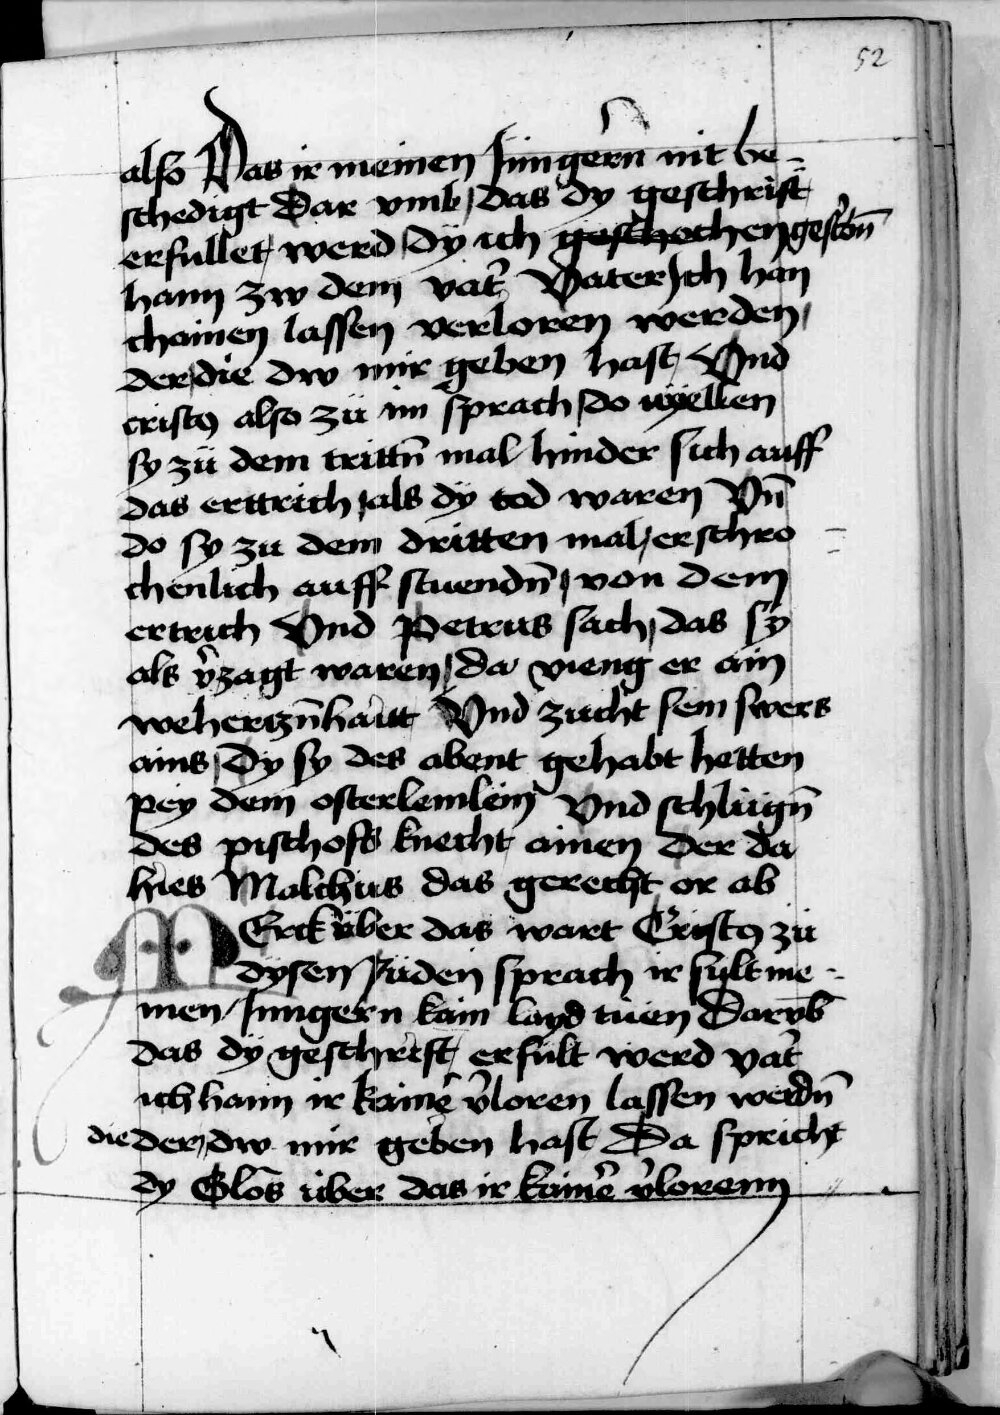 52
also Das ir meinen Jüngern nit be-
schedigt Dar vmb, das dy geschrift
erfullet werd dy ich geschochen
hann zw dem vat' Vater Ich han
chainen lassen verloren werden,
der die dw mir geben hast Vnd
cristꝯ also zü im sprach, do vyellen
sy zü dem trittn̄ mal hinder sich auff
das erttrich, als dy tod waren Vn̄
do sy zu dem dritten mal, erschro
chenlich auff stuendn̄, von dem
ertrich Vnd Petrus sach, das sy
als v'zagt waren, da vieng er ain
Vnd zucht sein swers
ains, Dy sy des abent gehabt hetten
pey dem osterlemlein Vnd schlugn̄
des pischofs knecht ainen Der da
hies Malchus das gerecht or ab
MErck über das wart Cristꝯ zü
dysen Jüden sprach ir sült me-
nen Jungern kain layd tuen Darvb̄
das dy geschrift erfült werd vat'
ich hann ir kaine' v'loren lassen werdn̄
die der, dw mir geben hast Da spricht
dy Glos über das ir kaine' v'lorenn